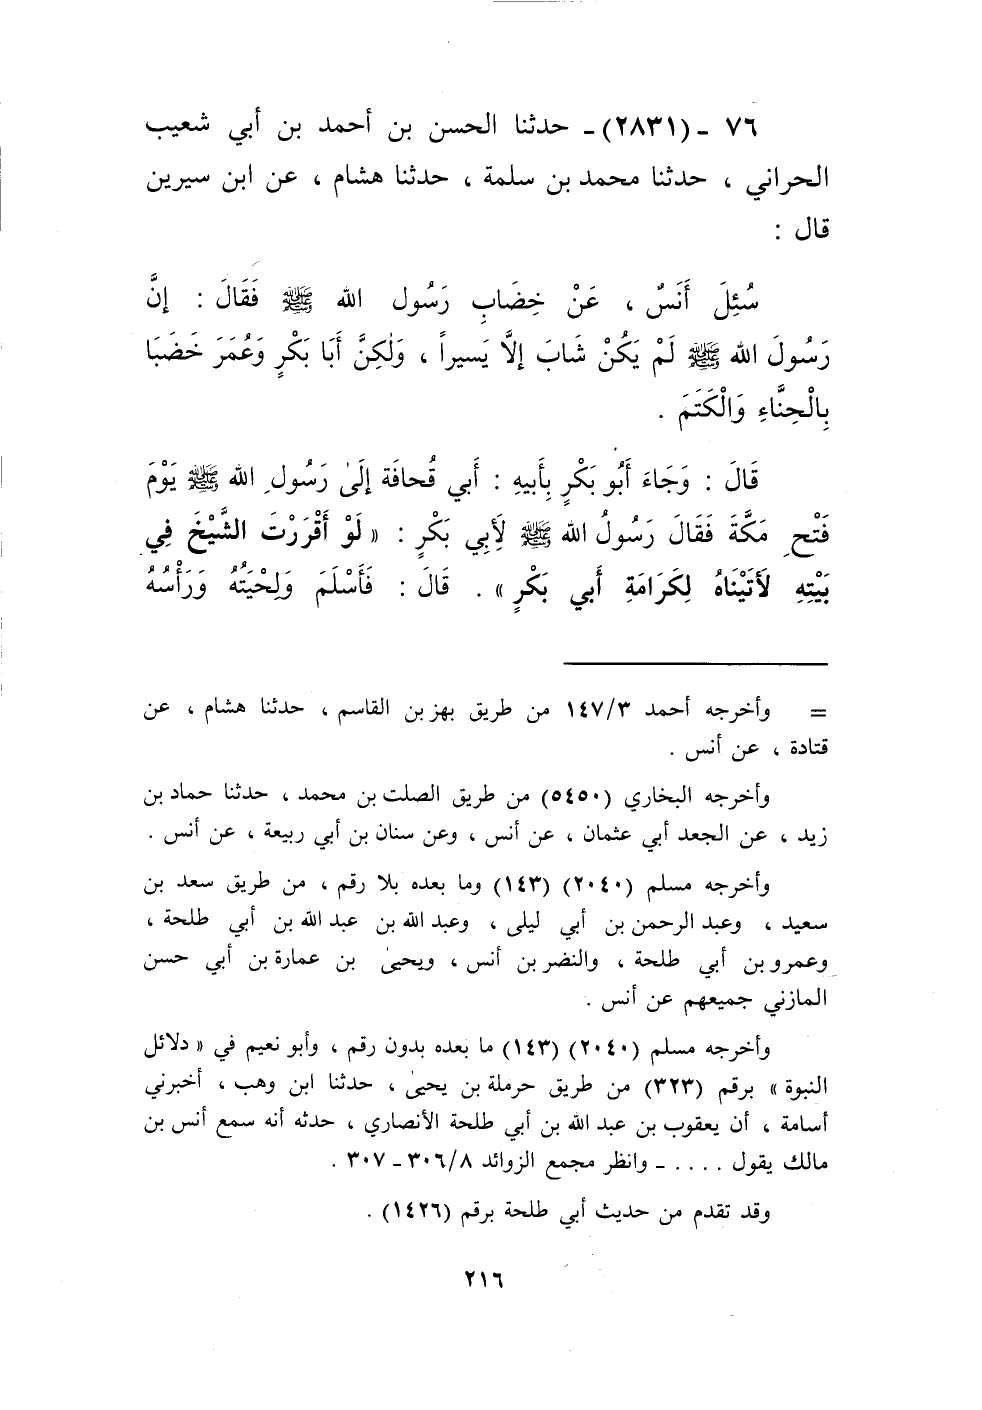 ٧٦ - (٢٨٣١)- حدثنا الحسن بن أحمد بن أبي شعيب
الحراني ، حدثنا محمد بن سلمة ، حدثنا هشام ، عن ابن سيرين
قال :
سُئِلَ أَنَسٌ ، عَنْ خِضَابِ رَسُول الله ﷺ فَقَالَ : إنَّ
رَسُولَ الله ﷺ لَمْ يَكُنْ شَابَ إلَّا يَسيراً ، وَلٰكِنَّ أَبَا بَكْرٍ وَعُمَرَ خَضَبَا
بِالْحِنَّاءِ وَالْكَتَمَ .
قَالَ : وَجَاءَ أَبُو بَكْرٍ بِأَبيهِ : أَبي قُحافَة إلَىٰ رَسُولِ الله ﷺ يَوْمَ
فَتْحِ مَكَّةَ فَقَالَ رَسُولُ الله ﷺ لِأَبِي بَكْرٍ : « لَوْ أَقْرَرْتَ الشَّيْخَ فِي
بَيْتِهِ لَأَتَيْنَاهُ لِكَرَامَةِ أَبي بَكْرٍ » . قَالَ : فَأَسْلَمَ وَلِحْيَتُهُ وَرَأْسُهُ
= وأخرجه أحمد ١٤٧/٣ من طريق بهز بن القاسم ، حدثنا هشام ، عن
قتادة ، عن أنس .
وأخرجه البخاري (٥٤٥٠) من طريق الصلت بن محمد ، حدثنا حماد بن
زيد ، عن الجعد أبي عثمان ، عن أنس ، وعن سنان بن أبي ربيعة ، عن أنس .
وأخرجه مسلم (٢٠٤٠) (١٤٣) وما بعده بلا رقم ، من طريق سعد بن
سعيد ، وعبد الرحمن بن أبي ليلى ، وعبد الله بن عبد الله بن أبي طلحة ،
وعمرو بن أبي طلحة ، والنضر بن أنس ، ويحيىٰ بن عمارة بن أبي حسن
المازني جميعهم عن أنس .
وأخرجه مسلم (٢٠٤٠) (١٤٣) ما بعده بدون رقم ، وأبو نعيم في « دلائل
النبوة » برقم (٣٢٣) من طريق حرملة بن يحيىٰ ، حدثنا ابن وهب ، أخبرني
أسامة ، أن يعقوب بن عبد الله بن أبي طلحة الأنصاري ، حدثه أنه سمع أنس بن
مالك يقول .... - وانظر مجمع الزوائد ٣٠٦/٨ - ٣٠٧ .
وقد تقدم من حديث أبي طلحة برقم (١٤٢٦) .
٢١٦